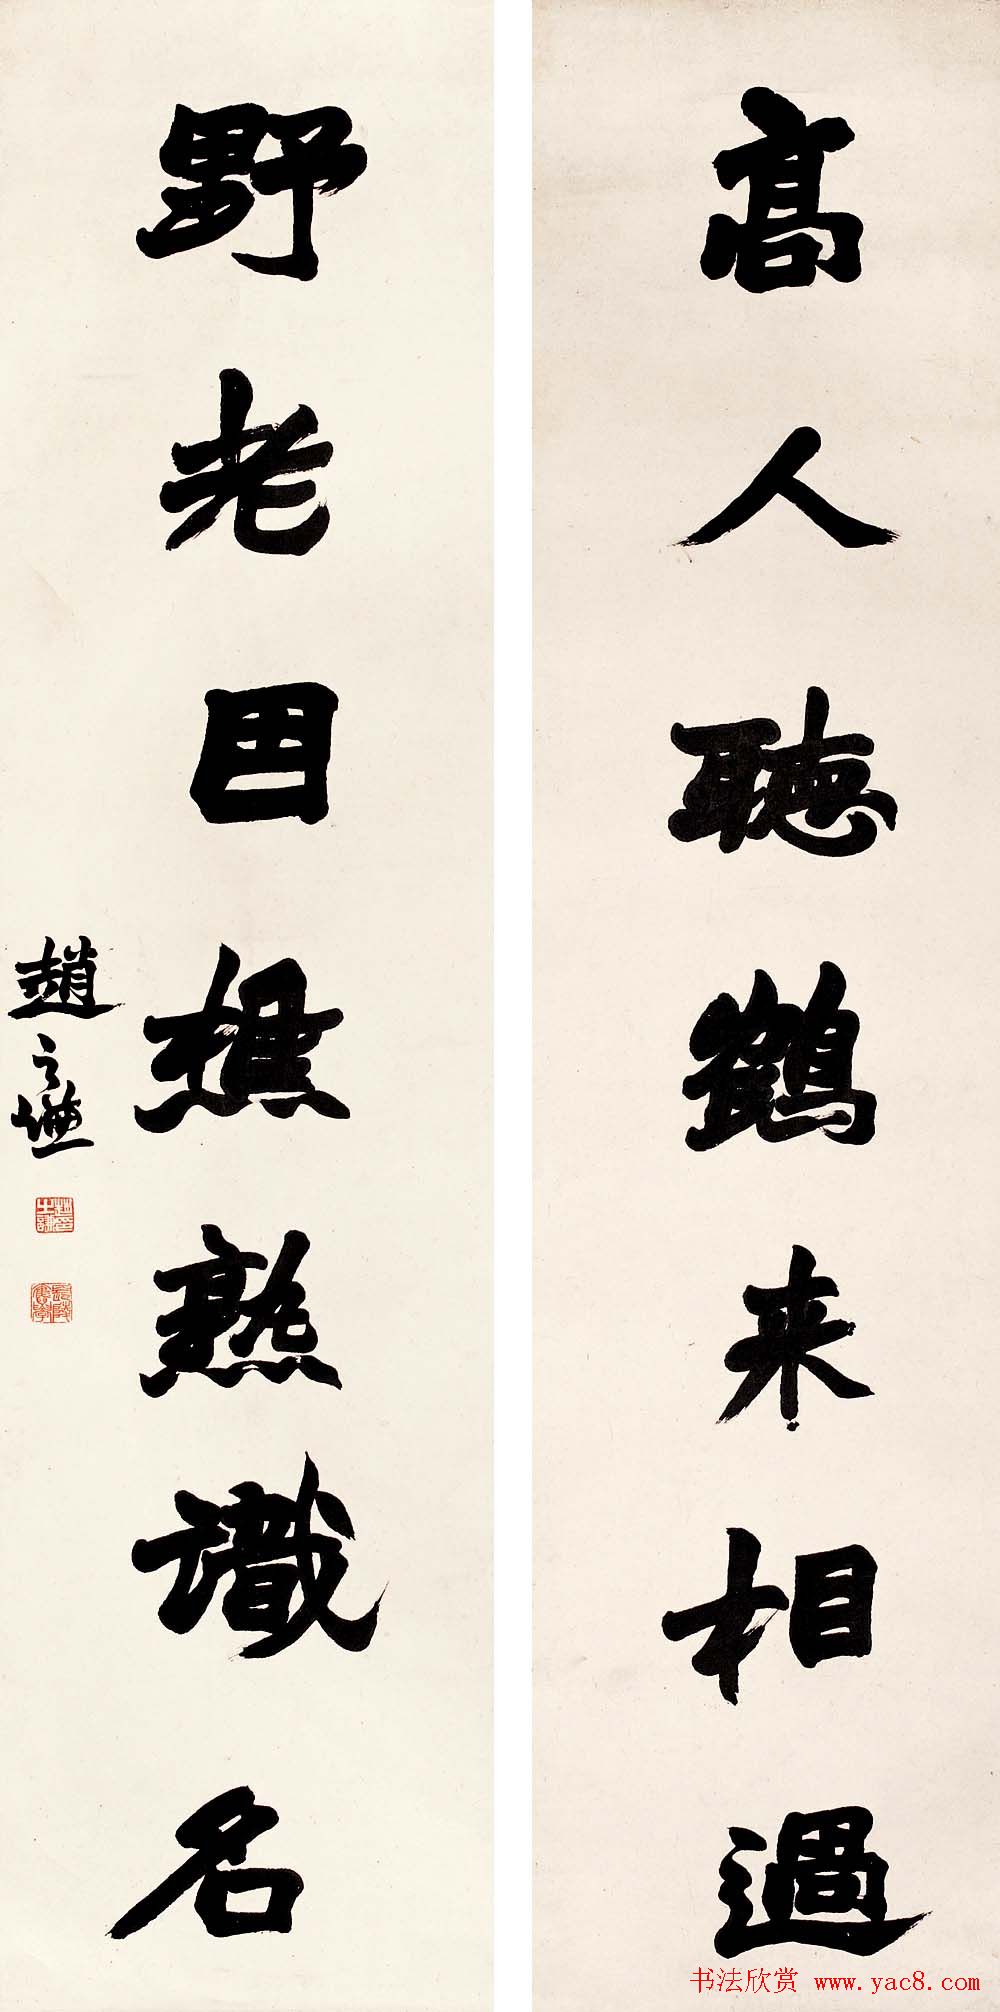 高人聽鶴来相過
野老囙樵熟識名
趙之謙
书法欣赏 www.yac8.com